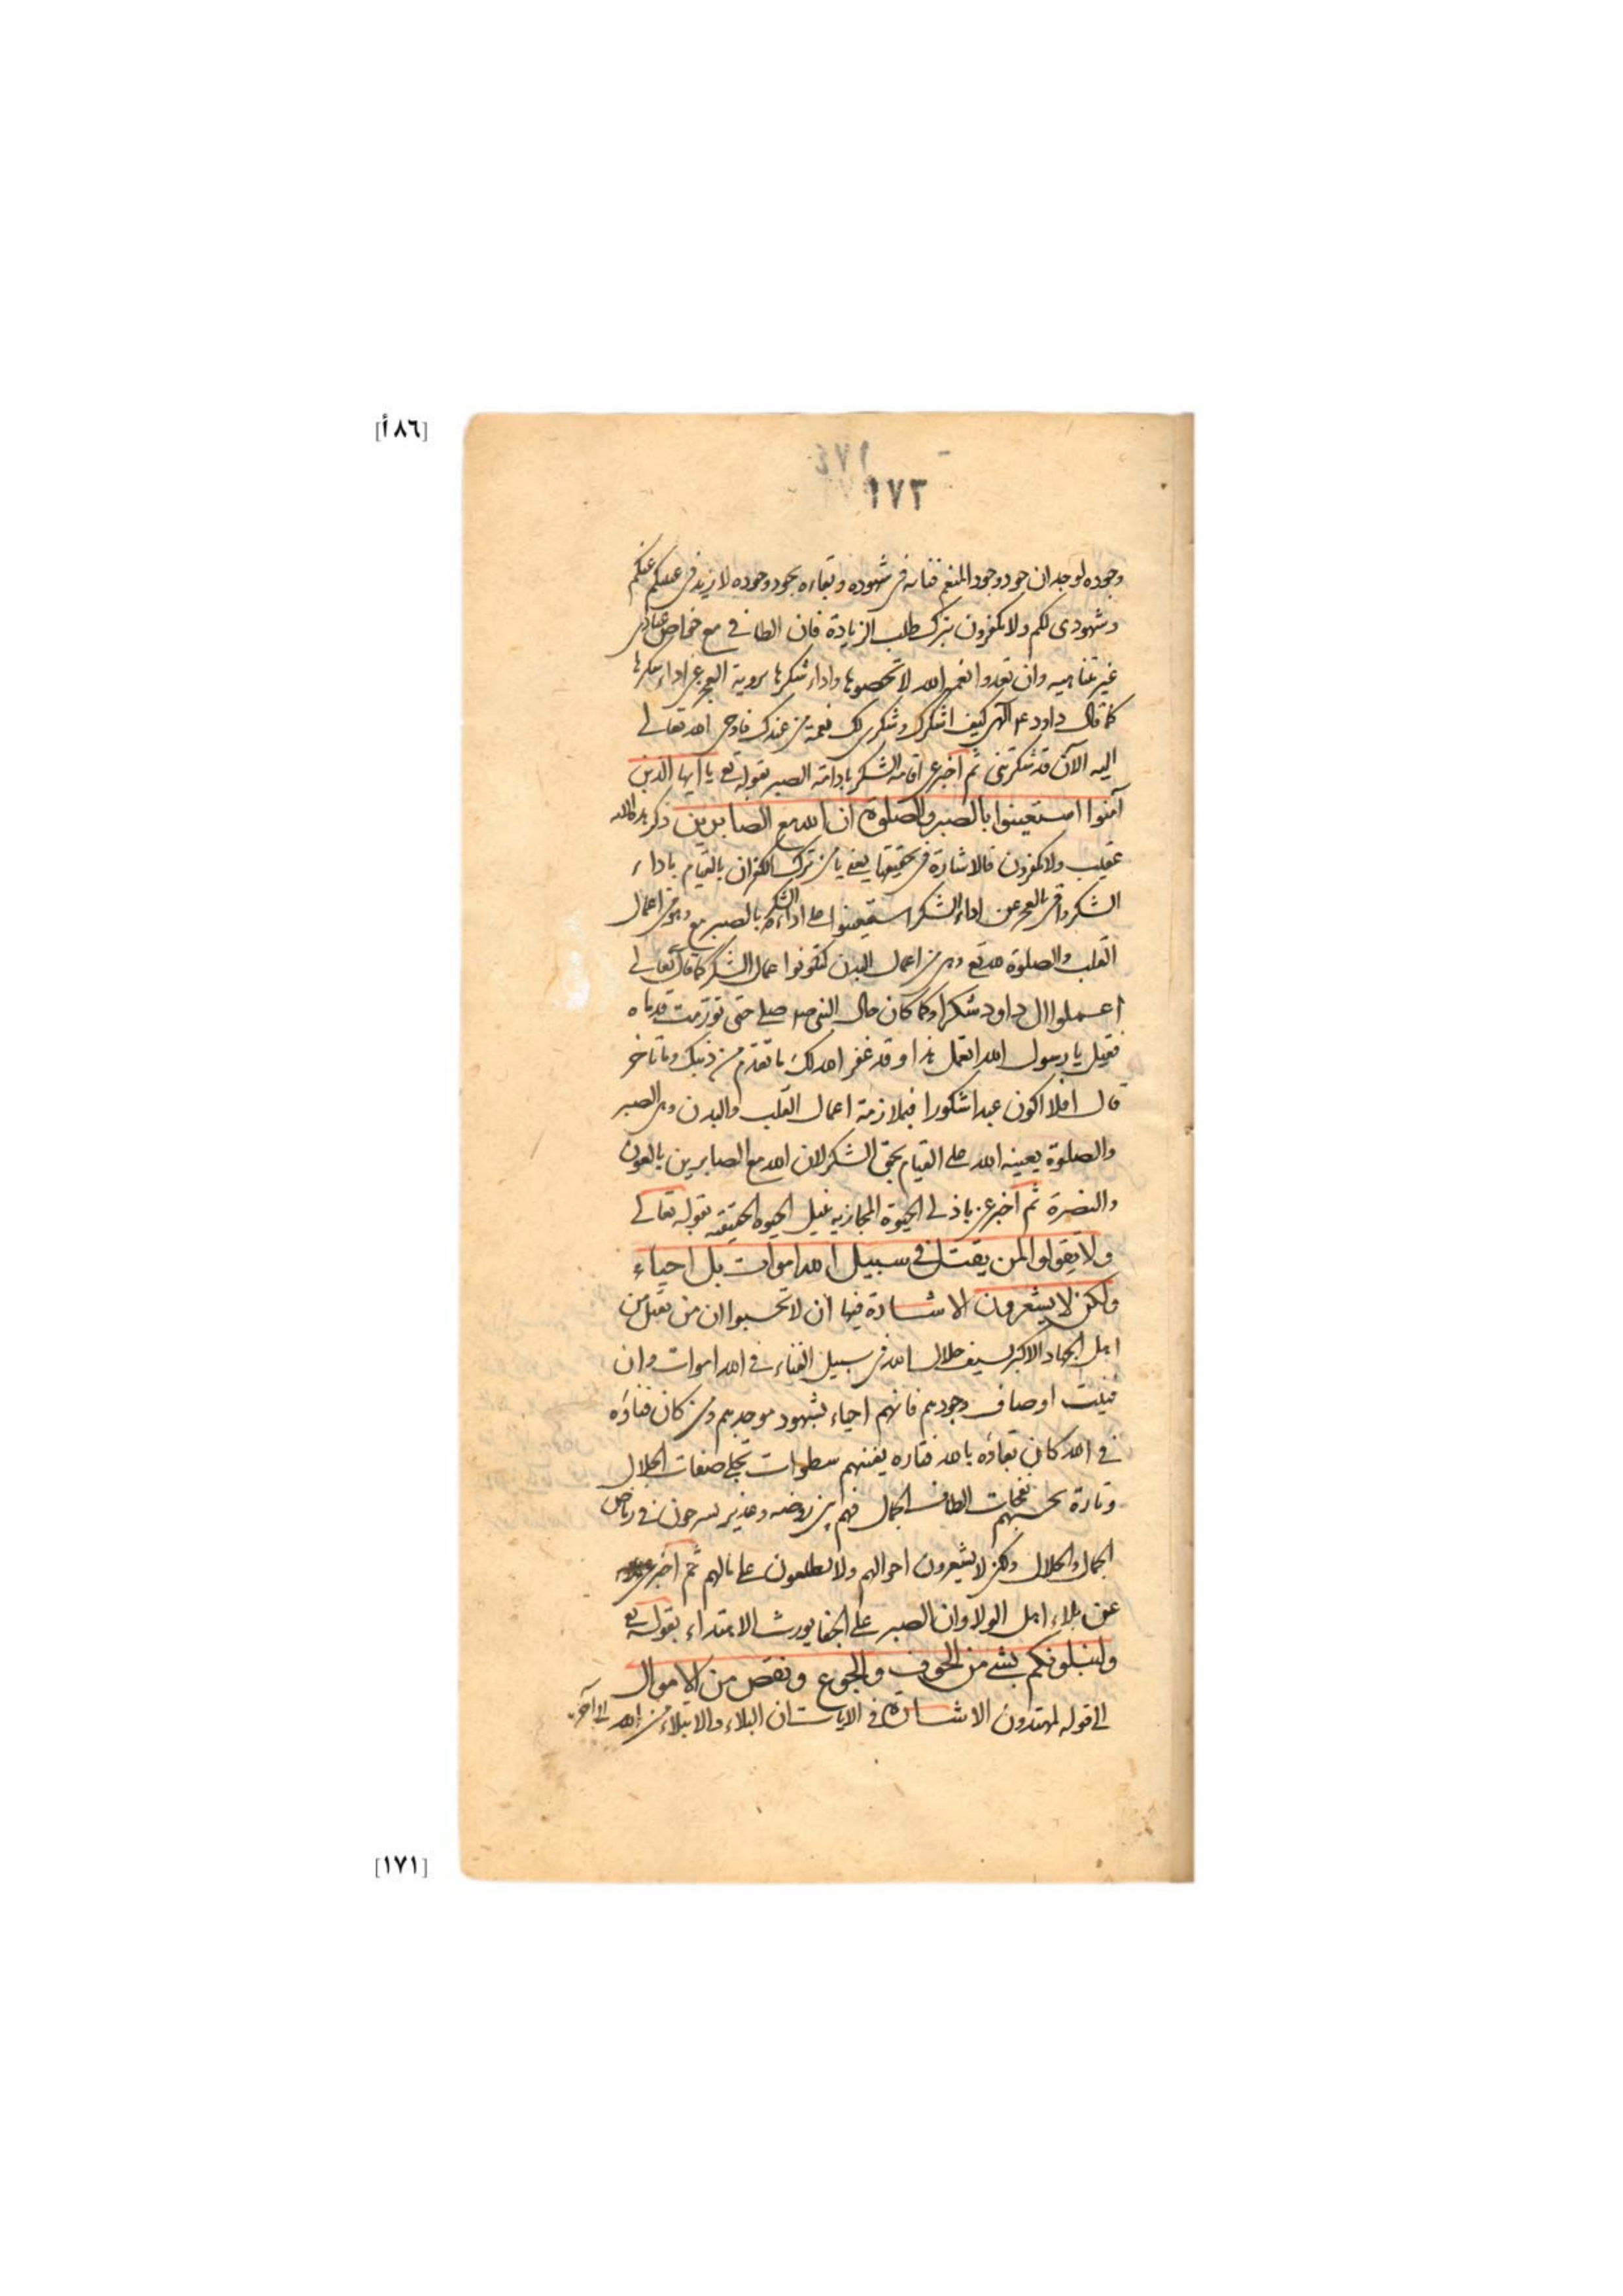 [٨٦أ]
١٧٤
١٧٣
وجوده لوجدان جود وجود المنعم فنائه فى شهوده وبقاءه بجود وجوده لازيد فى عليكم عنكم
وشهودى لكم ولا تكفرون بترك طلب الزيادة فان الطافى مع خواص عبادى
غير متناهيه وان تعدوا نعم الله لا تحصوها واداء شكرها بروية العجز عن اداء شكرها
كما قال داود ع الهى كيف اشكرك وشكرى لك نعمة من عندك فاوحى الله تعالى
اليه الآن قد شكرتنى ثم اخبر عن اقامة الشكر بادامة الصبر بقوله تع يا ايها الذين
آمنوا استعينوا بالصبر والصلوة ان الله مع الصابرين ذكر
عقيب ولا تكفرون فالاشارة فى تحقيقها يعنى يا من ترك الكفران بالقيام باداء
الشكر واقر بالعجز عن اداء الشكر استعينوا على اداء الشكر بالصبر مع وهو من اعمال
القلب والصلوة مع وهى من اعمال البدن لتكونوا عمال الشكر كما قال تعالى
اعملوا ال داود شكرا وكما كان حال النبى صلى حتى تورمت قدماه
فقيل يا رسول الله اتعمل هذا وقد غفر الله لك ما تقدم من ذنبك وما تاخر
قال افلا اكون عبدا شكورا فبملازمة اعمال القلب والبدن وهى الصبر
والصلوة يعينه الله على القيام بحق الشكر لان الله مع الصابرين بالعون
والنصرة ثم اخبر عن باذلى الحيوة المجازيه لنيل الحيوه الحقيقيه بقوله تعالى
ولا تقولوا لمن يقتل فى سبيل الله اموات بل احياء
ولكن لا يشعرون الاشارة فيها ان لا تحسبوا ان من يقتل من
اهل الجهاد الاكبر بسيف جلال الله فى سبيل الفناء فى الله اموات وان
فنيت اوصاف وجودهم فانهم احياء بشهود موجدهم ومن كان فناؤه
فى الله كان بقاؤه بالله فتاره يفنيهم سطوات تجلى صفات الجلال
وتارة يحييهم نفحات الطاف الجمال فهم بين روضه وغدير يسرحون فى رياض
الجمال والجلال ولكن لا يشعرون احوالهم ولا يطلعون على مالهم ثم اخبر
عن بلاء اهل الولا وان الصبر على الجفا يورث الاهتداء بقوله تع
ولنبلونكم بشئ من الخوف والجوع ونقص من الاموال
الى قوله المهتدون الاشارة فى الايات ان البلاء والابتلاء من الله الى آخره
[١٧١]